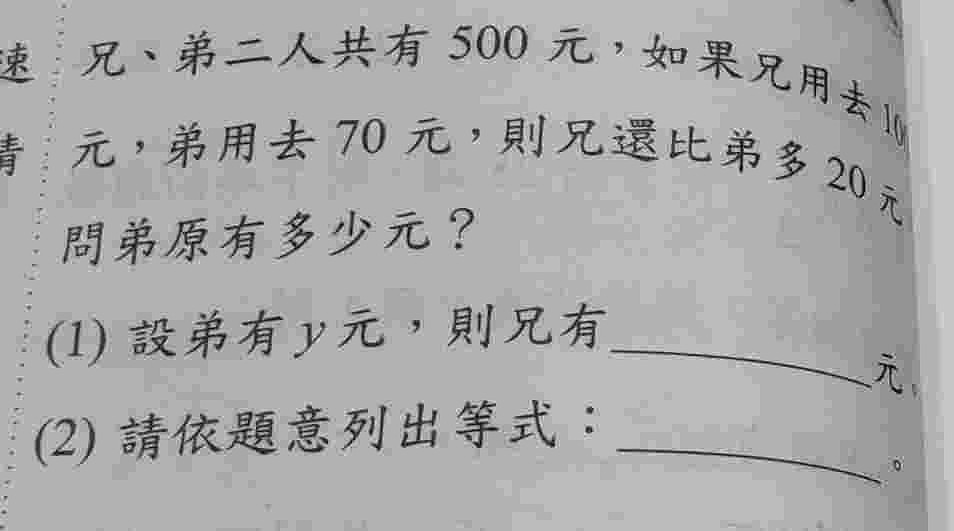 速 兄、弟二人共有 500 元，如果兄用去 10
請 元，弟用去 70 元，則兄還比弟多 20 元
問弟原有多少元？
(1) 設弟有 y 元，則兄有______元。
(2) 請依題意列出等式：______。